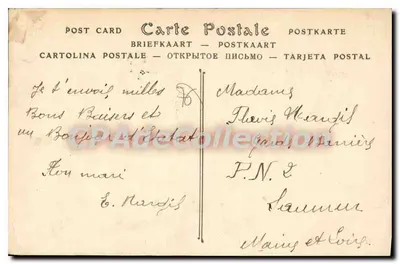 POST CARD Carte Postale POSTKARTE
BRIEFKAART — POSTKAART
CARTOLINA POSTALE — ОТКРЫТОЕ ПИСЬМО — TARJETA POSTAL
Je t'envois milles
Bons Baisers et
un Bonjour d'Etretat
Ton mari
E. Mangis
76
Madame
Flavie Mangis
garde Barrière
P.N. 2
Saumur
Maine et Loire